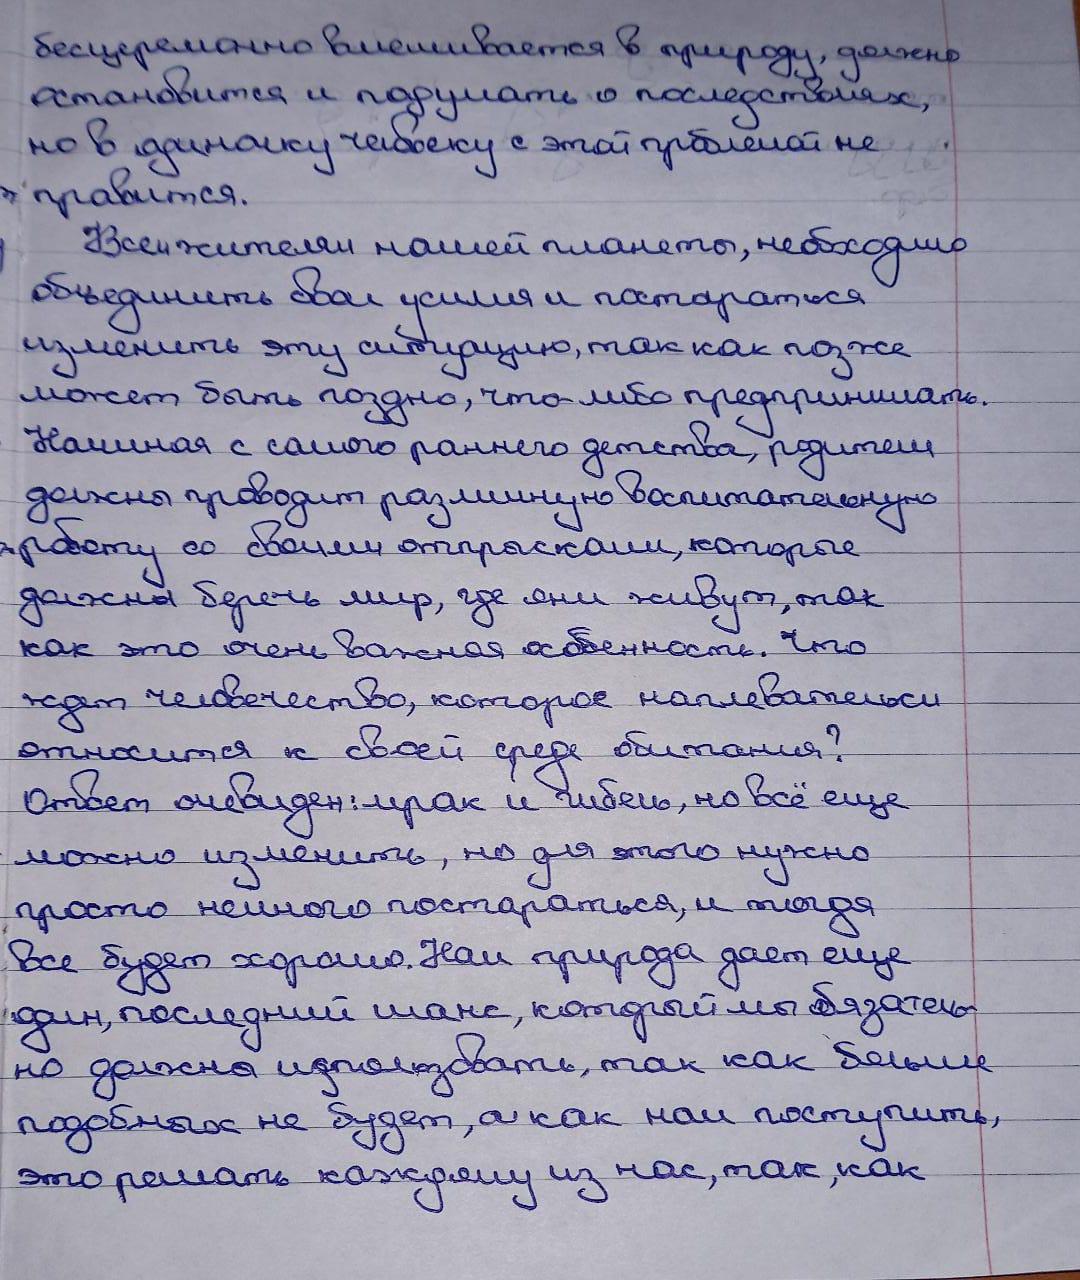 бесцеремонно вмешивается в природу, должно
остановится и подумать о последствиях,
но в одиночку человеку с этой проблемой не
правится.
Всем жителям нашей планеты, необходимо
объединить свои усилия и постараться
изменить эту ситурацию, так как позже
может быть поздно, что-либо предпринимать.
Начиная с самого раннего детства, родители
должны проводит различную воспитательную
работу со своими отпрысками, которые
должны беречь мир, где они живут, так
как это очень важная особенность. Что
ждет человечество, которое наплевательски
относится к своей среде обитания?
Ответ очевиден: мрак и гибель, но всё еще
можно изменить, но для этого нужно
просто немного постараться, и тогда
все будет хорошо. Нам природа дает еще
один, последний шанс, который мы обязатель
но должны использовать, так как больше
подобных не будет, а как нам поступить,
это решать каждому из нас, так, как